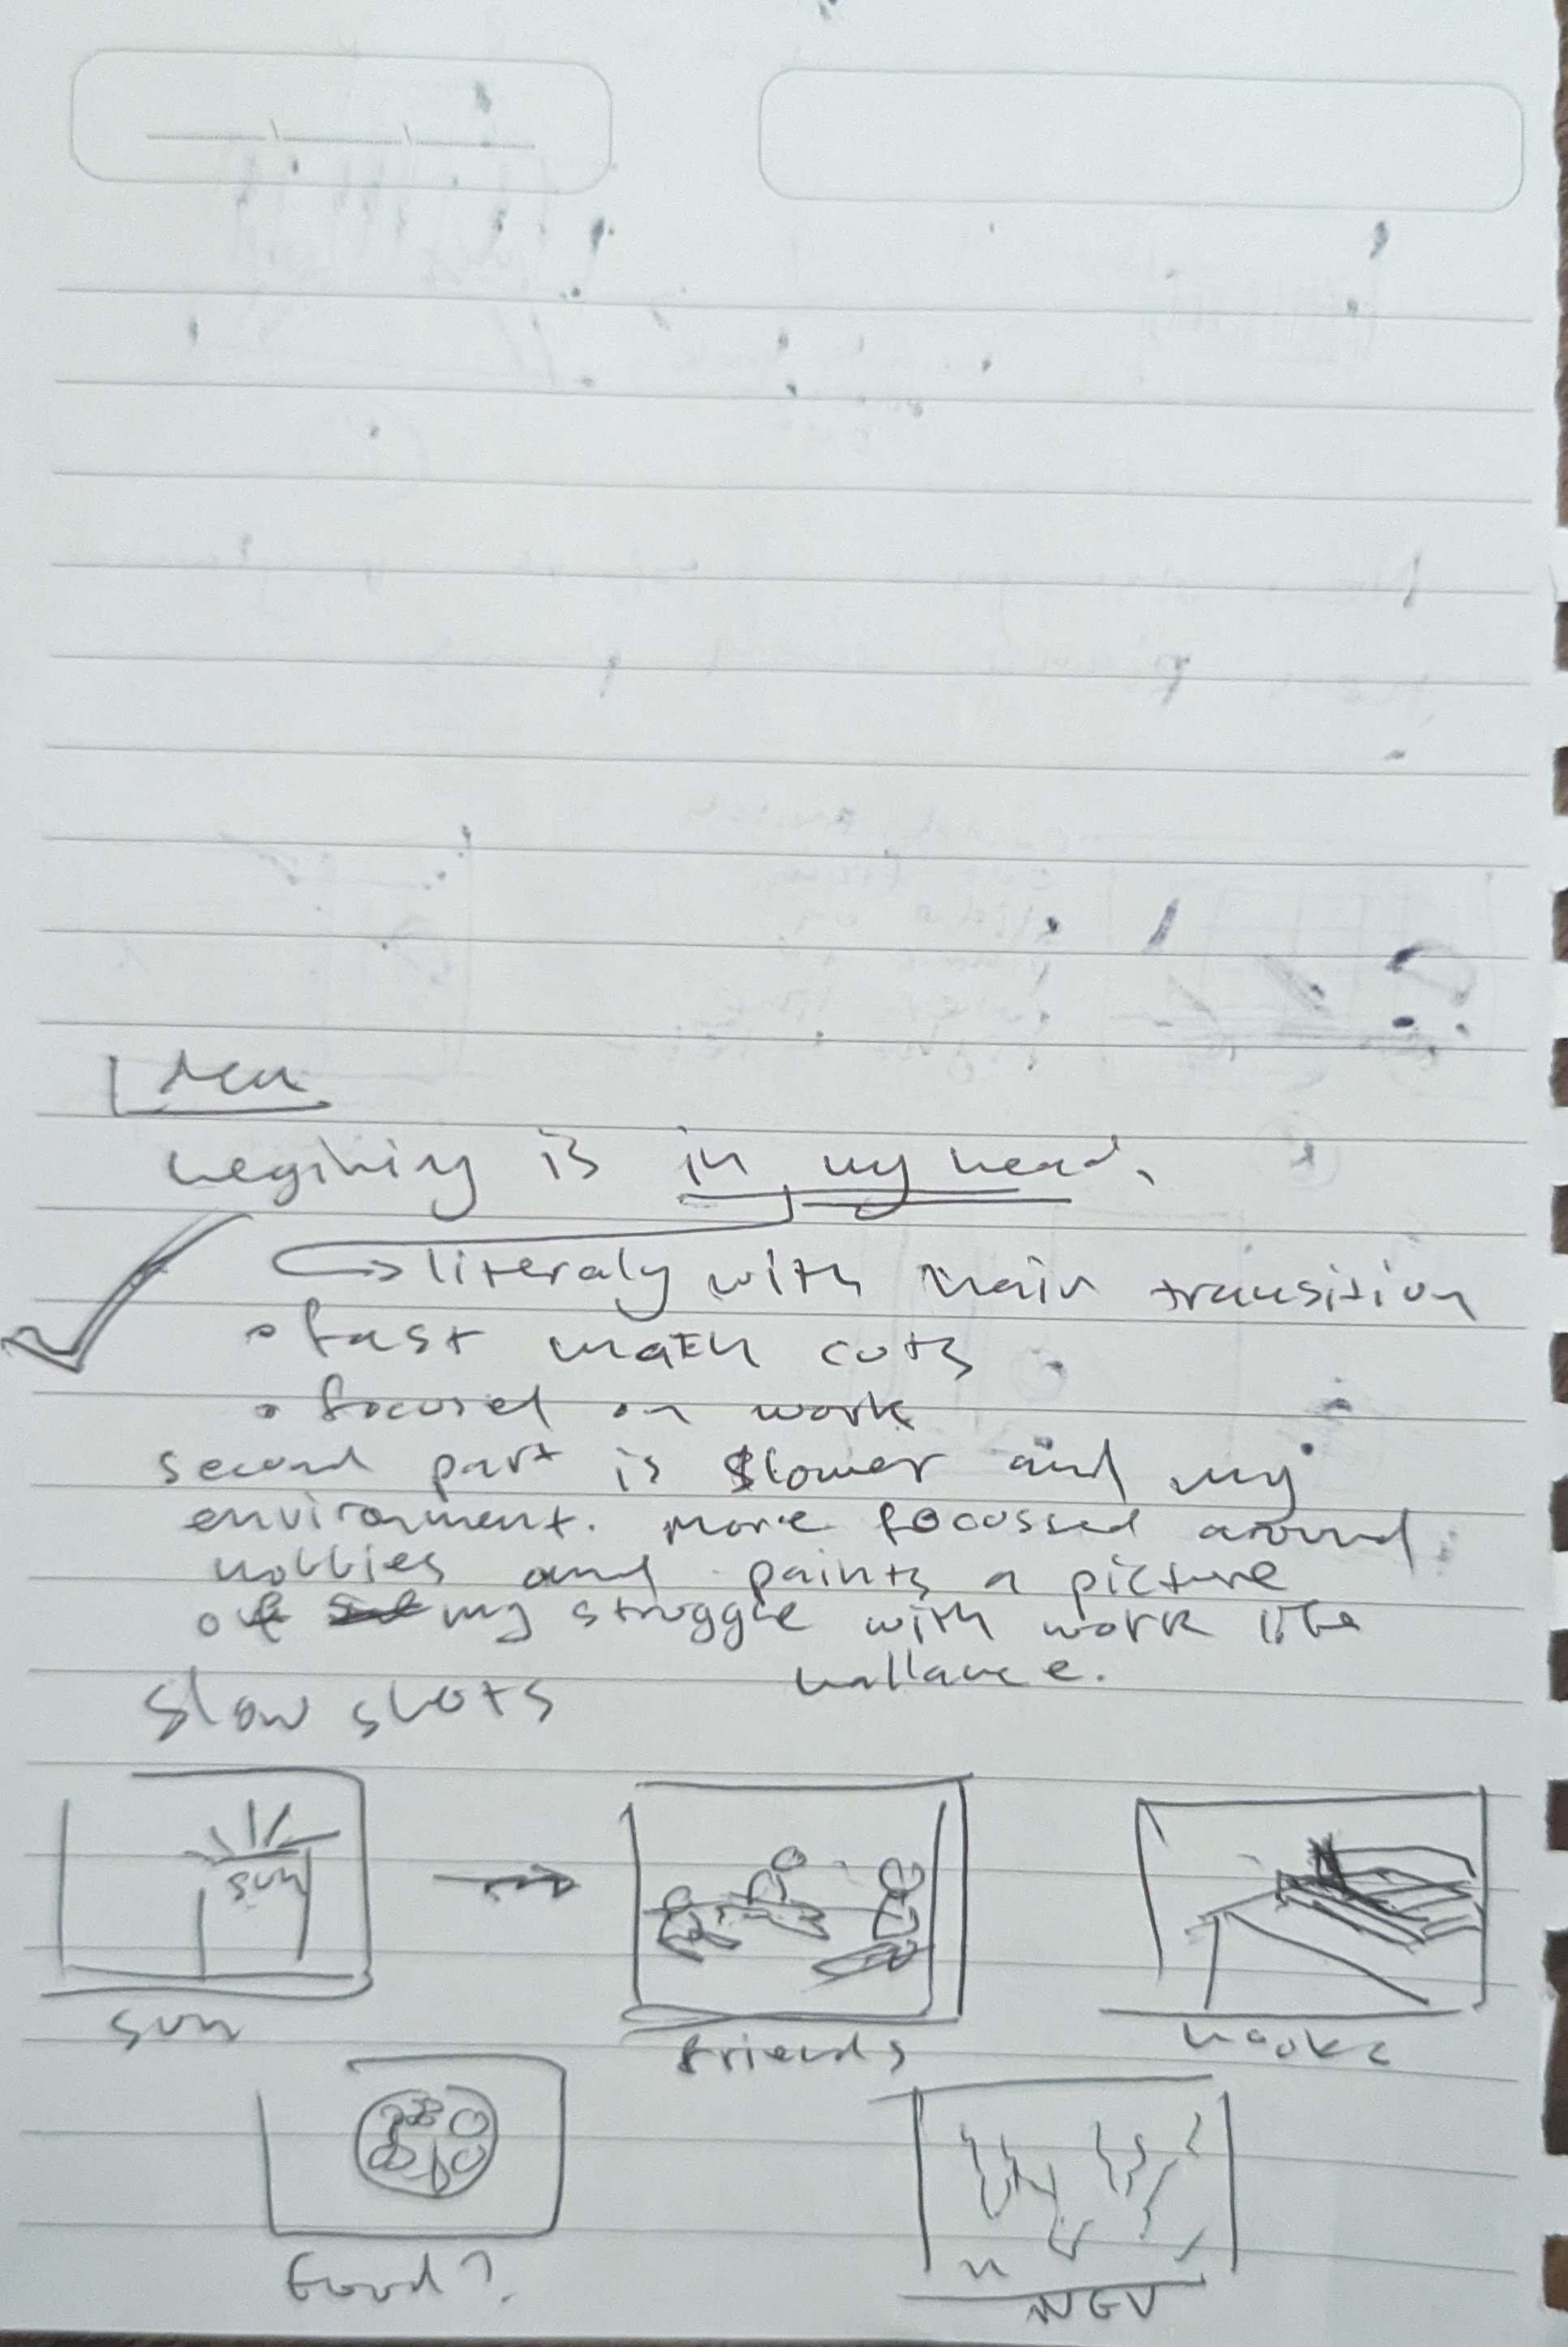 Idea
begining is in my head.
literaly with main transition
fast match cuts
focused on work
second part is slower and my
environment. more focussed around
hobbies and paints a picture
of my struggle with work life
ballance.
Slow shots
sun
sun
friends
books
food?
NGV